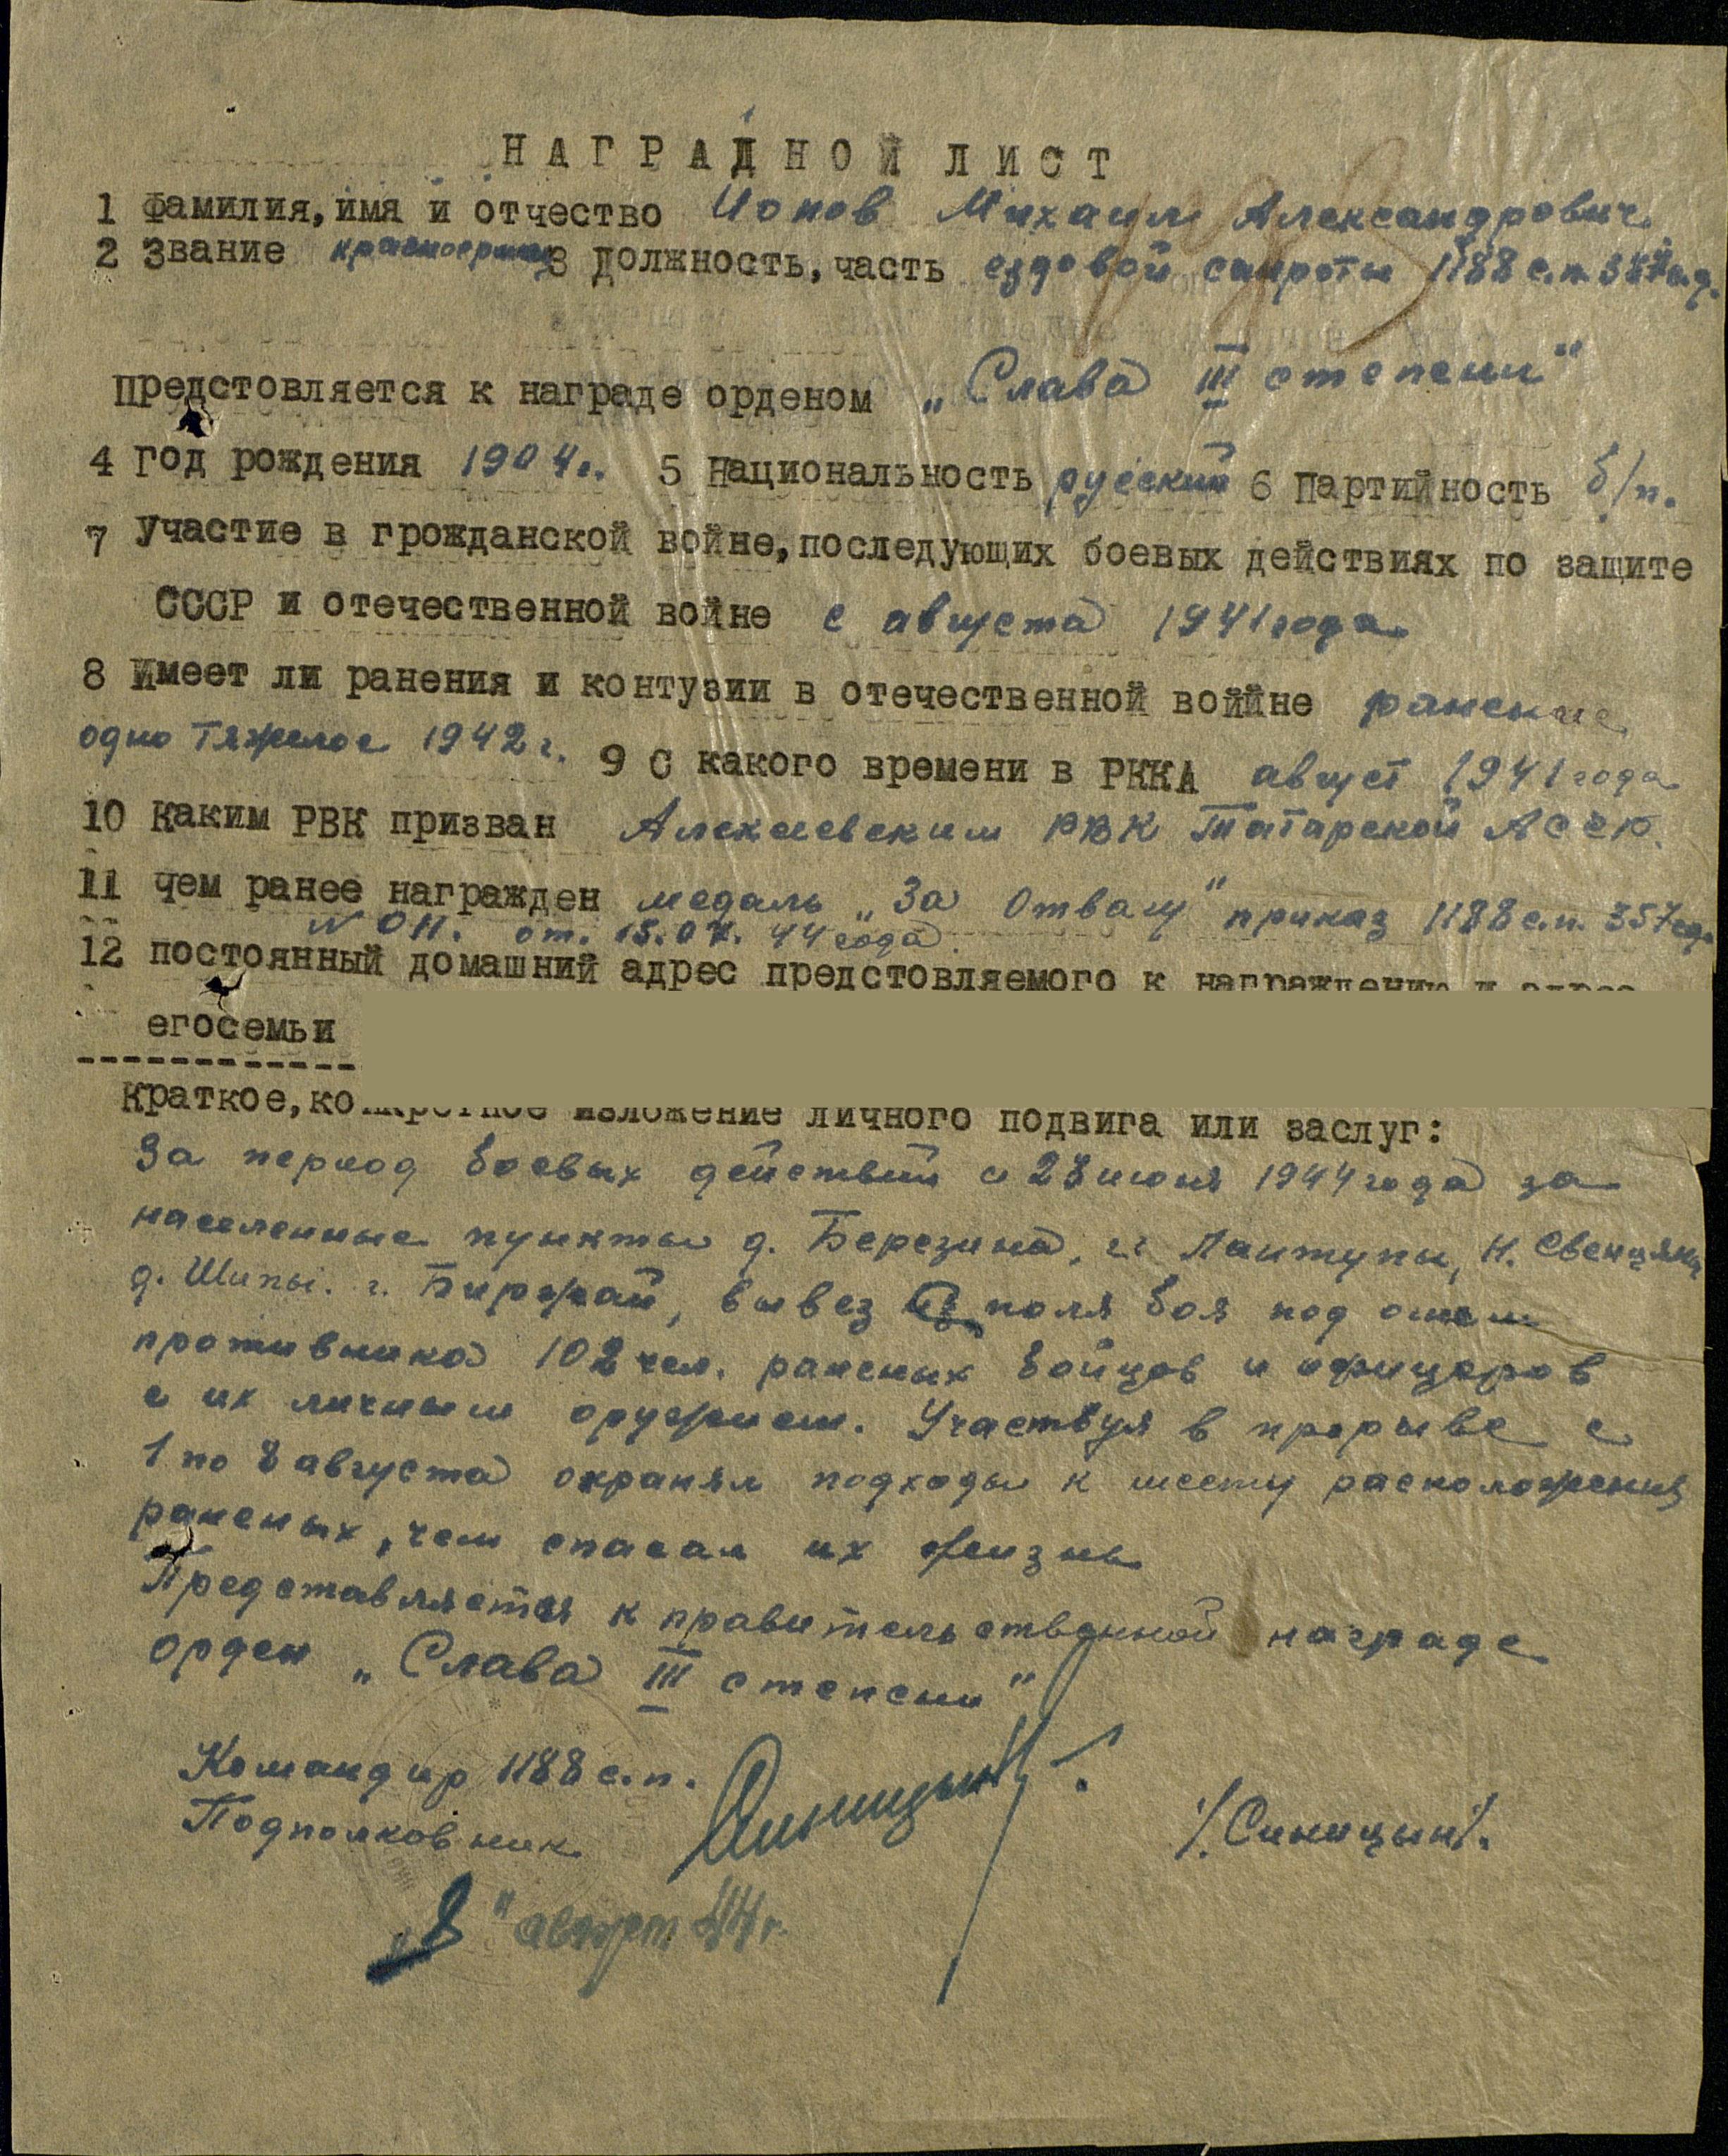 НАГРАДНОЙ ЛИСТ
1 Фамилия, имя и отчество Ионов Михаил Александрович
2 Звание красноармеец 3 Должность, часть ездовой санроты 1188 с.п. 357 с.д.
Предстовляется к награде орденом „Слава III степени"
4 Год рождения 1904 г. 5 Национальность русский 6 Партийность б/п.
7 Участие в грожданской войне, последующих боевых действиях по защите
СССР и отечественной войне с августа 1941 года.
8 Имеет ли ранения и контузии в отечественной воййне ранение
одно тяжелое 1942 г. 9 С какого времени в РККА август 1941 года
10 Каким РВК призван Алексеевским РВК Татарской АССР.
11 чем ранее награжден медаль „За Отвагу" приказ 1188 с.п. 357 сд.
N 011. от. 15.07. 44 года.
12 постоянный домашний адрес предстовляемого к награждению и адрес
егосемьи
Краткое, конкретное изложение личного подвига или заслуг:
За период боевых действий с 23 июня 1944 года за
населенные пункты д. Березина, г. Лынтупы, Н. Свенцяны
д. Шипы. г. Биржай, вывез с поля боя под огнем
противника 102 чел. раненых бойцов и офицеров
с их личным оружием. Участвуя в прорыве с
1 по 8 августа охранял подходы к месту расположения
раненых, чем спасал их жизнь
Представляется к правительственной награде
орден „Слава III степени"
Командир 1188 с.п.
Подполковник Синицын /.Синицын/.
„8" август 44 г.